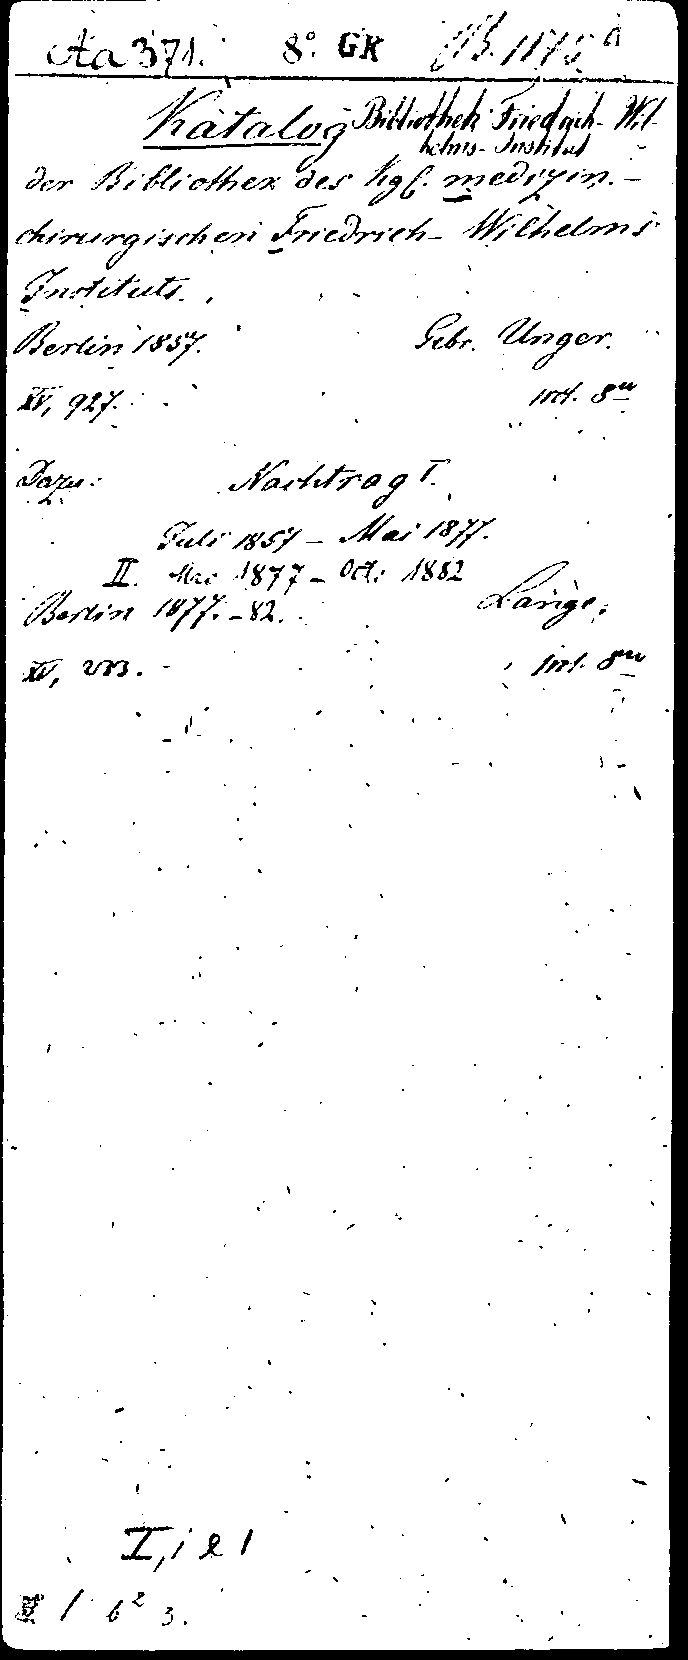 Aa 371. 8° GK B. 1175 a
Katalog Bibliothek Friedrich-Wil-
helms-Institut
der Bibliothek des Kgl. medizin.-
chirurgischen Friedrich-Wilhelms
Instituts.
Berlin 1857. Gebr. Unger.
XV, 927.
Dazu: Nachtrag I.
Juli 1857 – Mai 1877.
II. Mai 1877 – Oct. 1882
Berlin 1877.-82. Lange.
I, i e 1
1 6² 3.